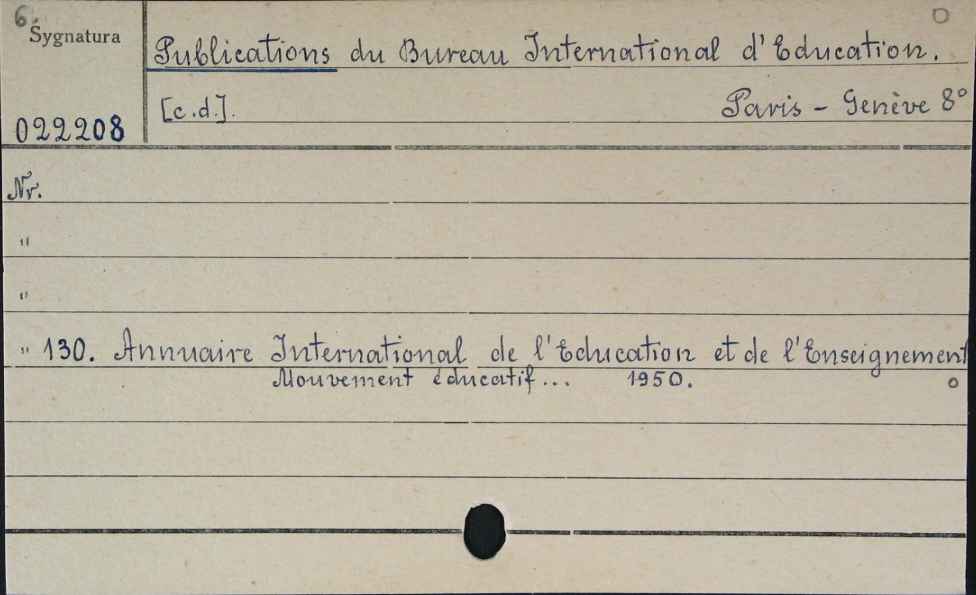 6.
Sygnatura
Publications du Bureau International d'Education.
[c.d.]. Paris - Genève 8°
022208
Nr.
"
"
" 130. Annuaire International de l'Education et de l'Enseignement
Mouvement éducatif... 1950.